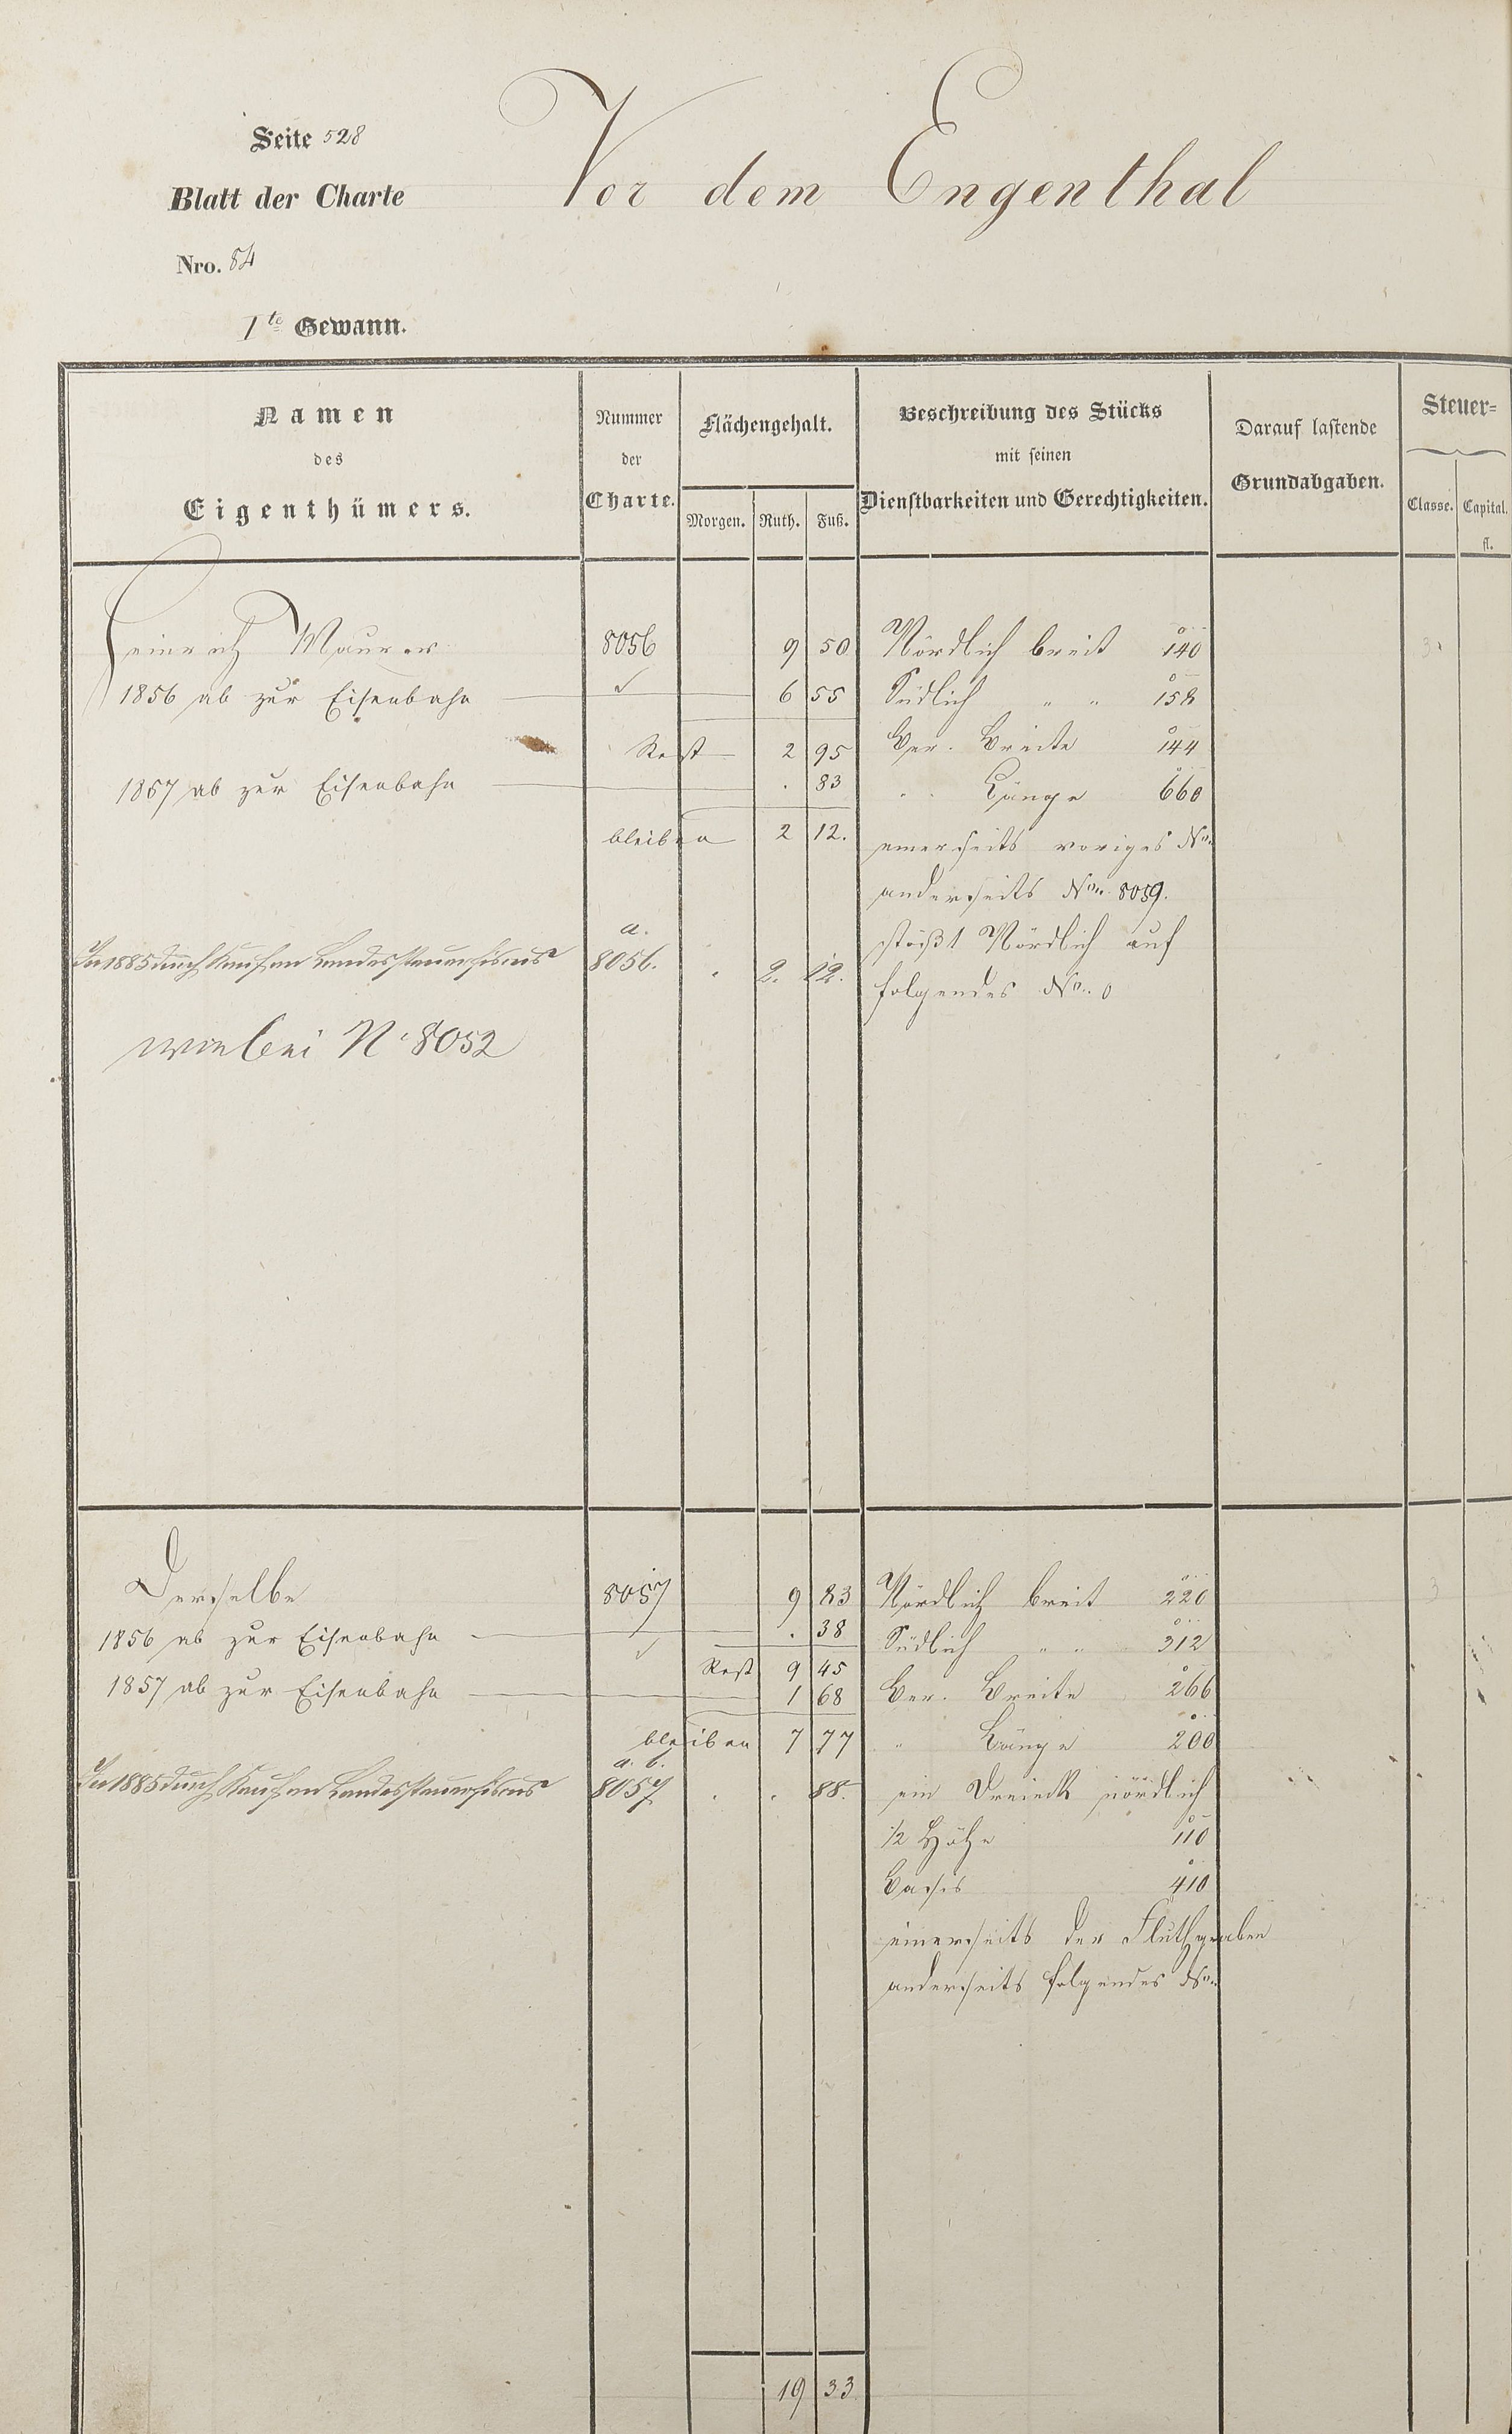 Seite 528
Vor dem Engenthal
Blatt der Charte
Nro. 84
1te Gewann.
Namen des Eigenthümers.
Nummer der Charte.
Flächengehalt.
Morgen. Ruth. Fuß.
Beschreibung des Stücks
mit seinen
Dienstbarkeiten und Gerechtigkeiten.
Darauf lastende
Grundabgaben.
Steuer-
Classe. Capital.
fl.
Heinrich Maurer 8056 9 50 Nördlich breit 140
1856 ab zur Eisenbahn 6 55 Südlich " " 158
Rest 2 95 Ver. Breite 144
1857 ab zur Eisenbahn . 83 " Länge 660
bleiben 2 12. einerseits voriges No.
anderseits No. 8059.
a. stößt Nördlich auf
In 1885 durch Kauf an Landessteuerfiscus 8056. . 2. 12. folgendes No. 0
wie bei N. 8052
Derselbe 8057 9 83 Nördlich breit 220 3
1856 ab zur Eisenbahn . 38 Südlich " " 312
Rest 9 45
1857 ab zur Eisenbahn 1 68 Ver. Breite 266
bleiben 7 77 " Länge 200
a. b.
In 1885 durch Kauf an Landessteuerfiscus 8057 . . 88. ein Dreieck nördlich
1/2 Höhe 110
Basis 410
einerseits der Fluthgraben
anderseits folgendes No.
19 33